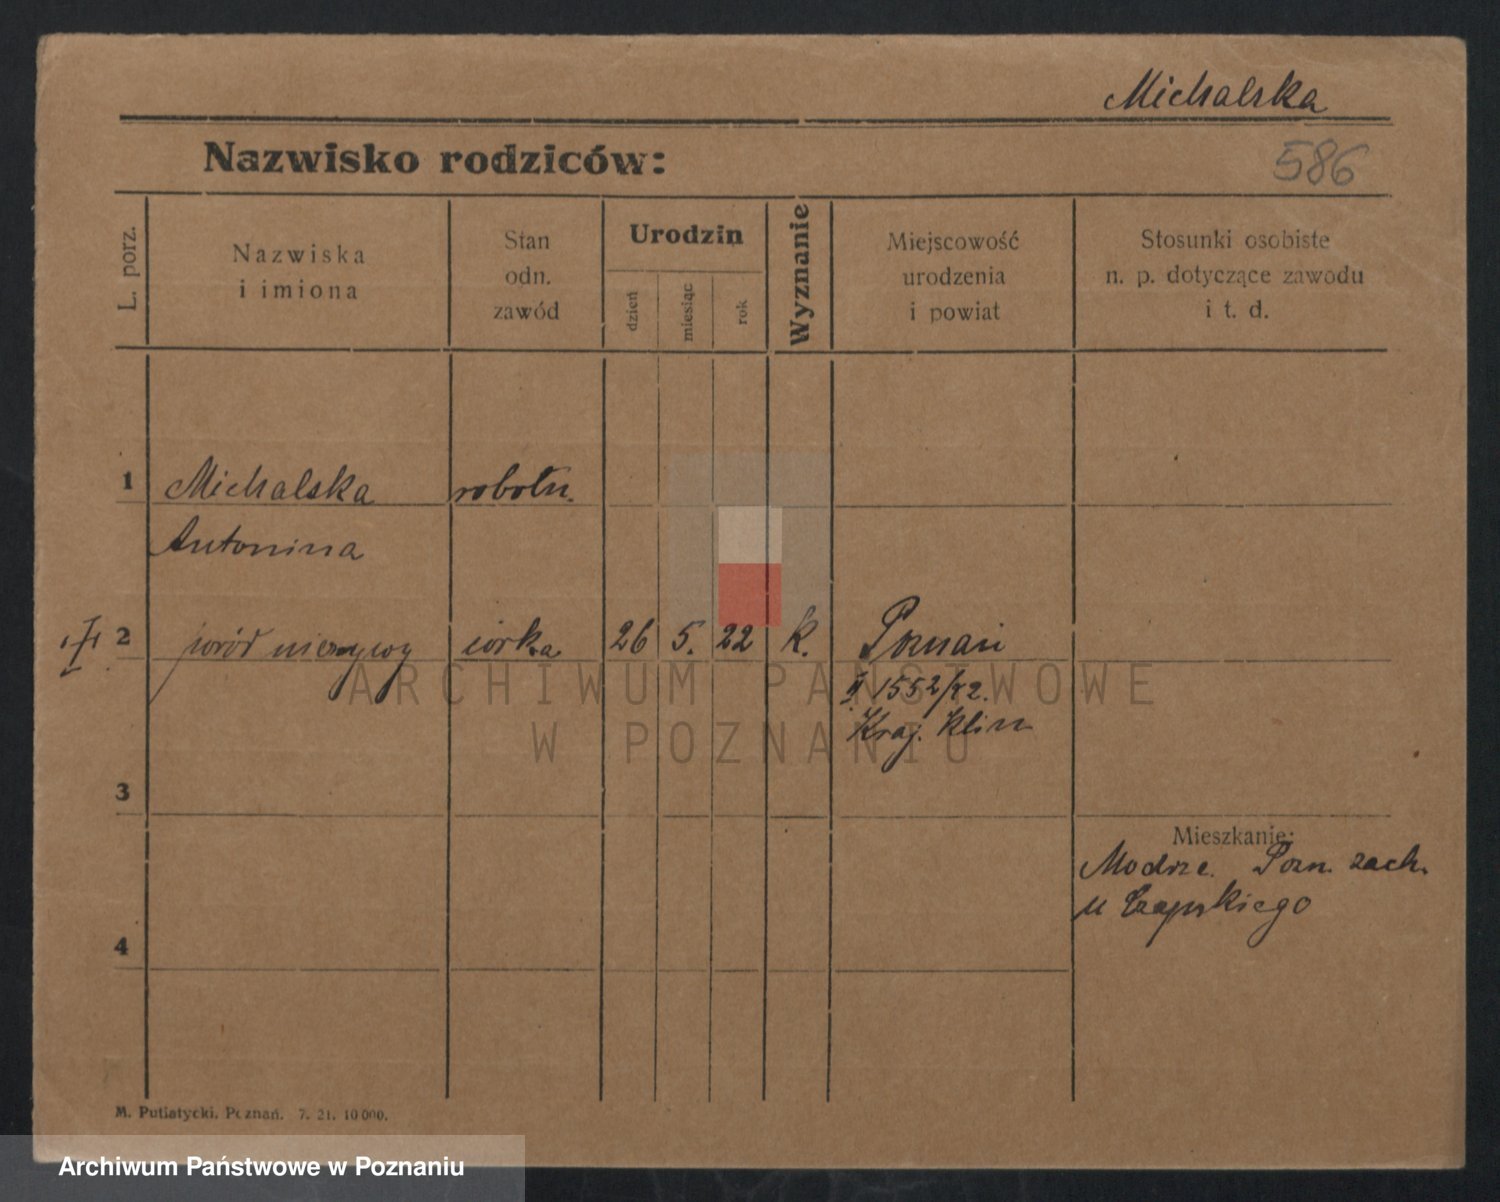 Michalska
586
Nazwisko rodziców:
L. porz.
Nazwiska
i imiona
Stan
odn.
zawód
Urodzin
dzień
miesiąc
rok
Wyznanie
Miejscowość
urodzenia
i powiat
Stosunki osobiste
n. p. dotyczące zawodu
i t. d.
1 Michalska robotn.
Antonina
2 nieżywy córka 26 5. 22 k. Poznań
II 1552/22.
Kraj. Klin
3
Mieszkanie:
Modrze. Pozn. zach.
u Czapskiego
4
M. Putiatycki, Poznań. 7. 21. 10 000.
ARCHIWUM PAŃSTWOWE
W POZNANIU
Archiwum Państwowe w Poznaniu